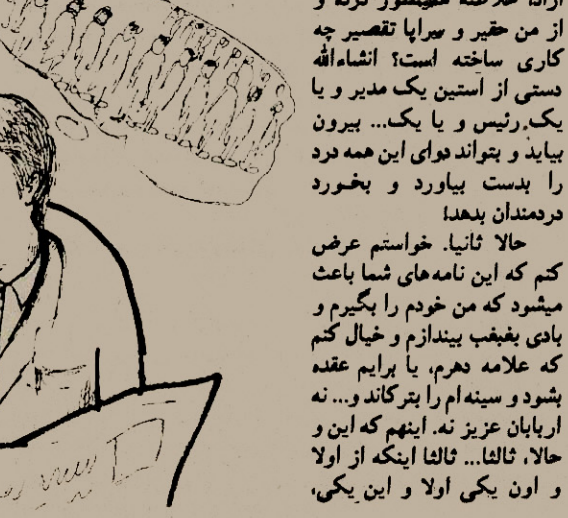 از من حقیر و سراپا تقصیر چه
کاری ساخته است؟ انشاءالله
دستی از آستین یک مدیر و یا
یک رئیس و یا یک... بیرون
بیاید و بتواند دوای این همه درد
را بدست بیاورد و بخورد
دردمندان بدهد!
حالا ثانیا. خواستم عرض
کنم که این نامه‌های شما باعث
میشود که من خودم را بگیرم و
بادی بغبغب بیندازم و خیال کنم
که علامه دهرم، یا برایم عقده
بشود و سینه‌ام را بترکاند و... نه
اربابان عزیز نه. اینهم که این و
حالا، ثالثا... ثالثا اینکه از اولا
و اون یکی اولا و این یکی،